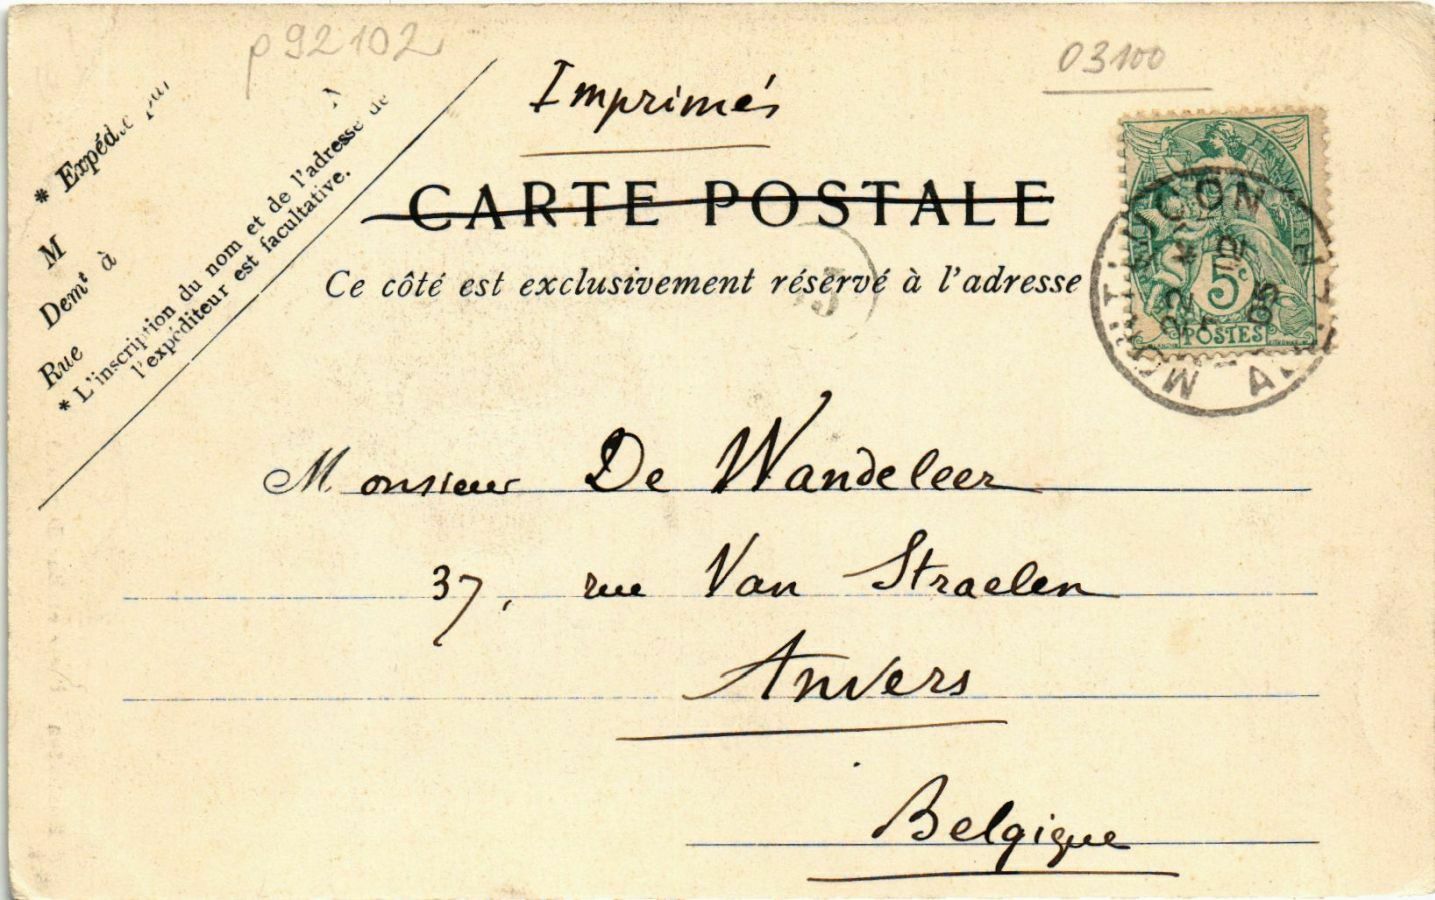 p92102
03100
Imprimés
* Expédié par
M
Demt à
Rue
* L'inscription du nom et de l'adresse de
l'expéditeur est facultative.
CARTE POSTALE
Ce côté est exclusivement réservé à l'adresse
MONTLUÇON
ALLIER
22
5
05
5c
POSTES
Monsieur De Wandeleer
37, rue Van Straelen
Anvers
Belgique